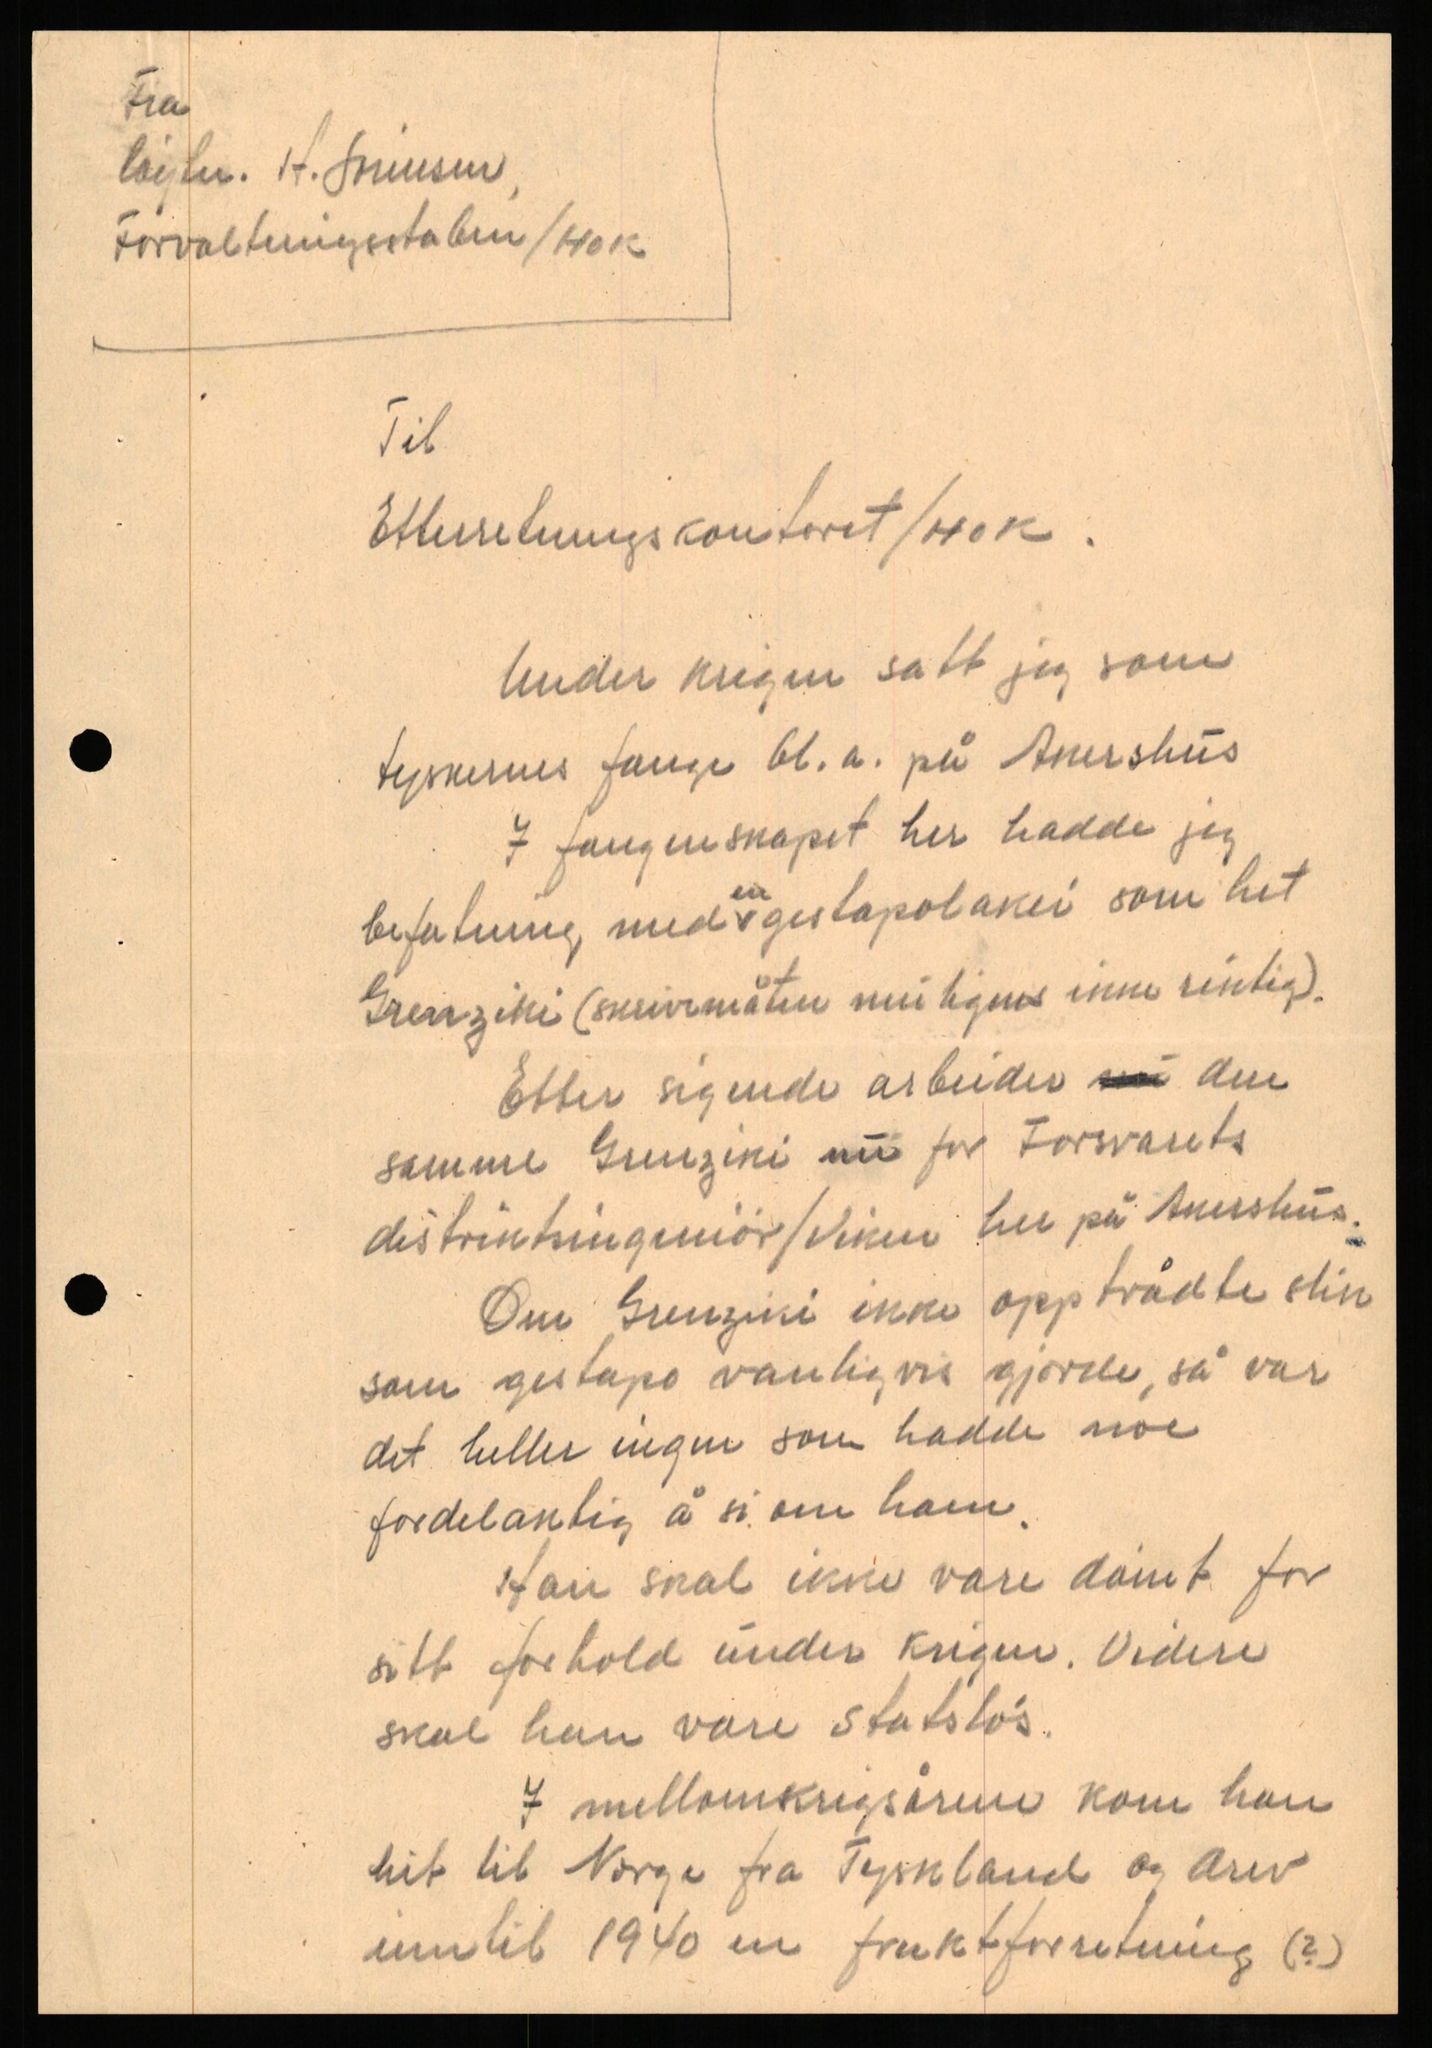 Fra
løytn. H. Sørensen,
Forvaltningsstaben/HOK
Til
Etterretningskontoret/HOK.
Under krigen satt jeg som
tyskernes fange bl.a. på Akershus
I fangenskapet her hadde jeg
befatning med en gestapolakei som het
Grenziki (skrivemåten muligens ikke riktig).
Etter sigende arbeider den
samme Grenziki nu for Forsvarets
distriktsingeniør/Viken her på Akershus.
Om Grenziki ikke opptrådte slik
som gestapo vanligvis gjorde, så var
det heller ingen som hadde noe
fordelaktig å si om ham.
Han skal ikke være dømt for
sitt forhold under krigen. Videre
skal han være statsløs.
I mellomkrigsårene kom han
hit til Norge fra Tyskland og drev
inntil 1940 en fruktforretning (?)